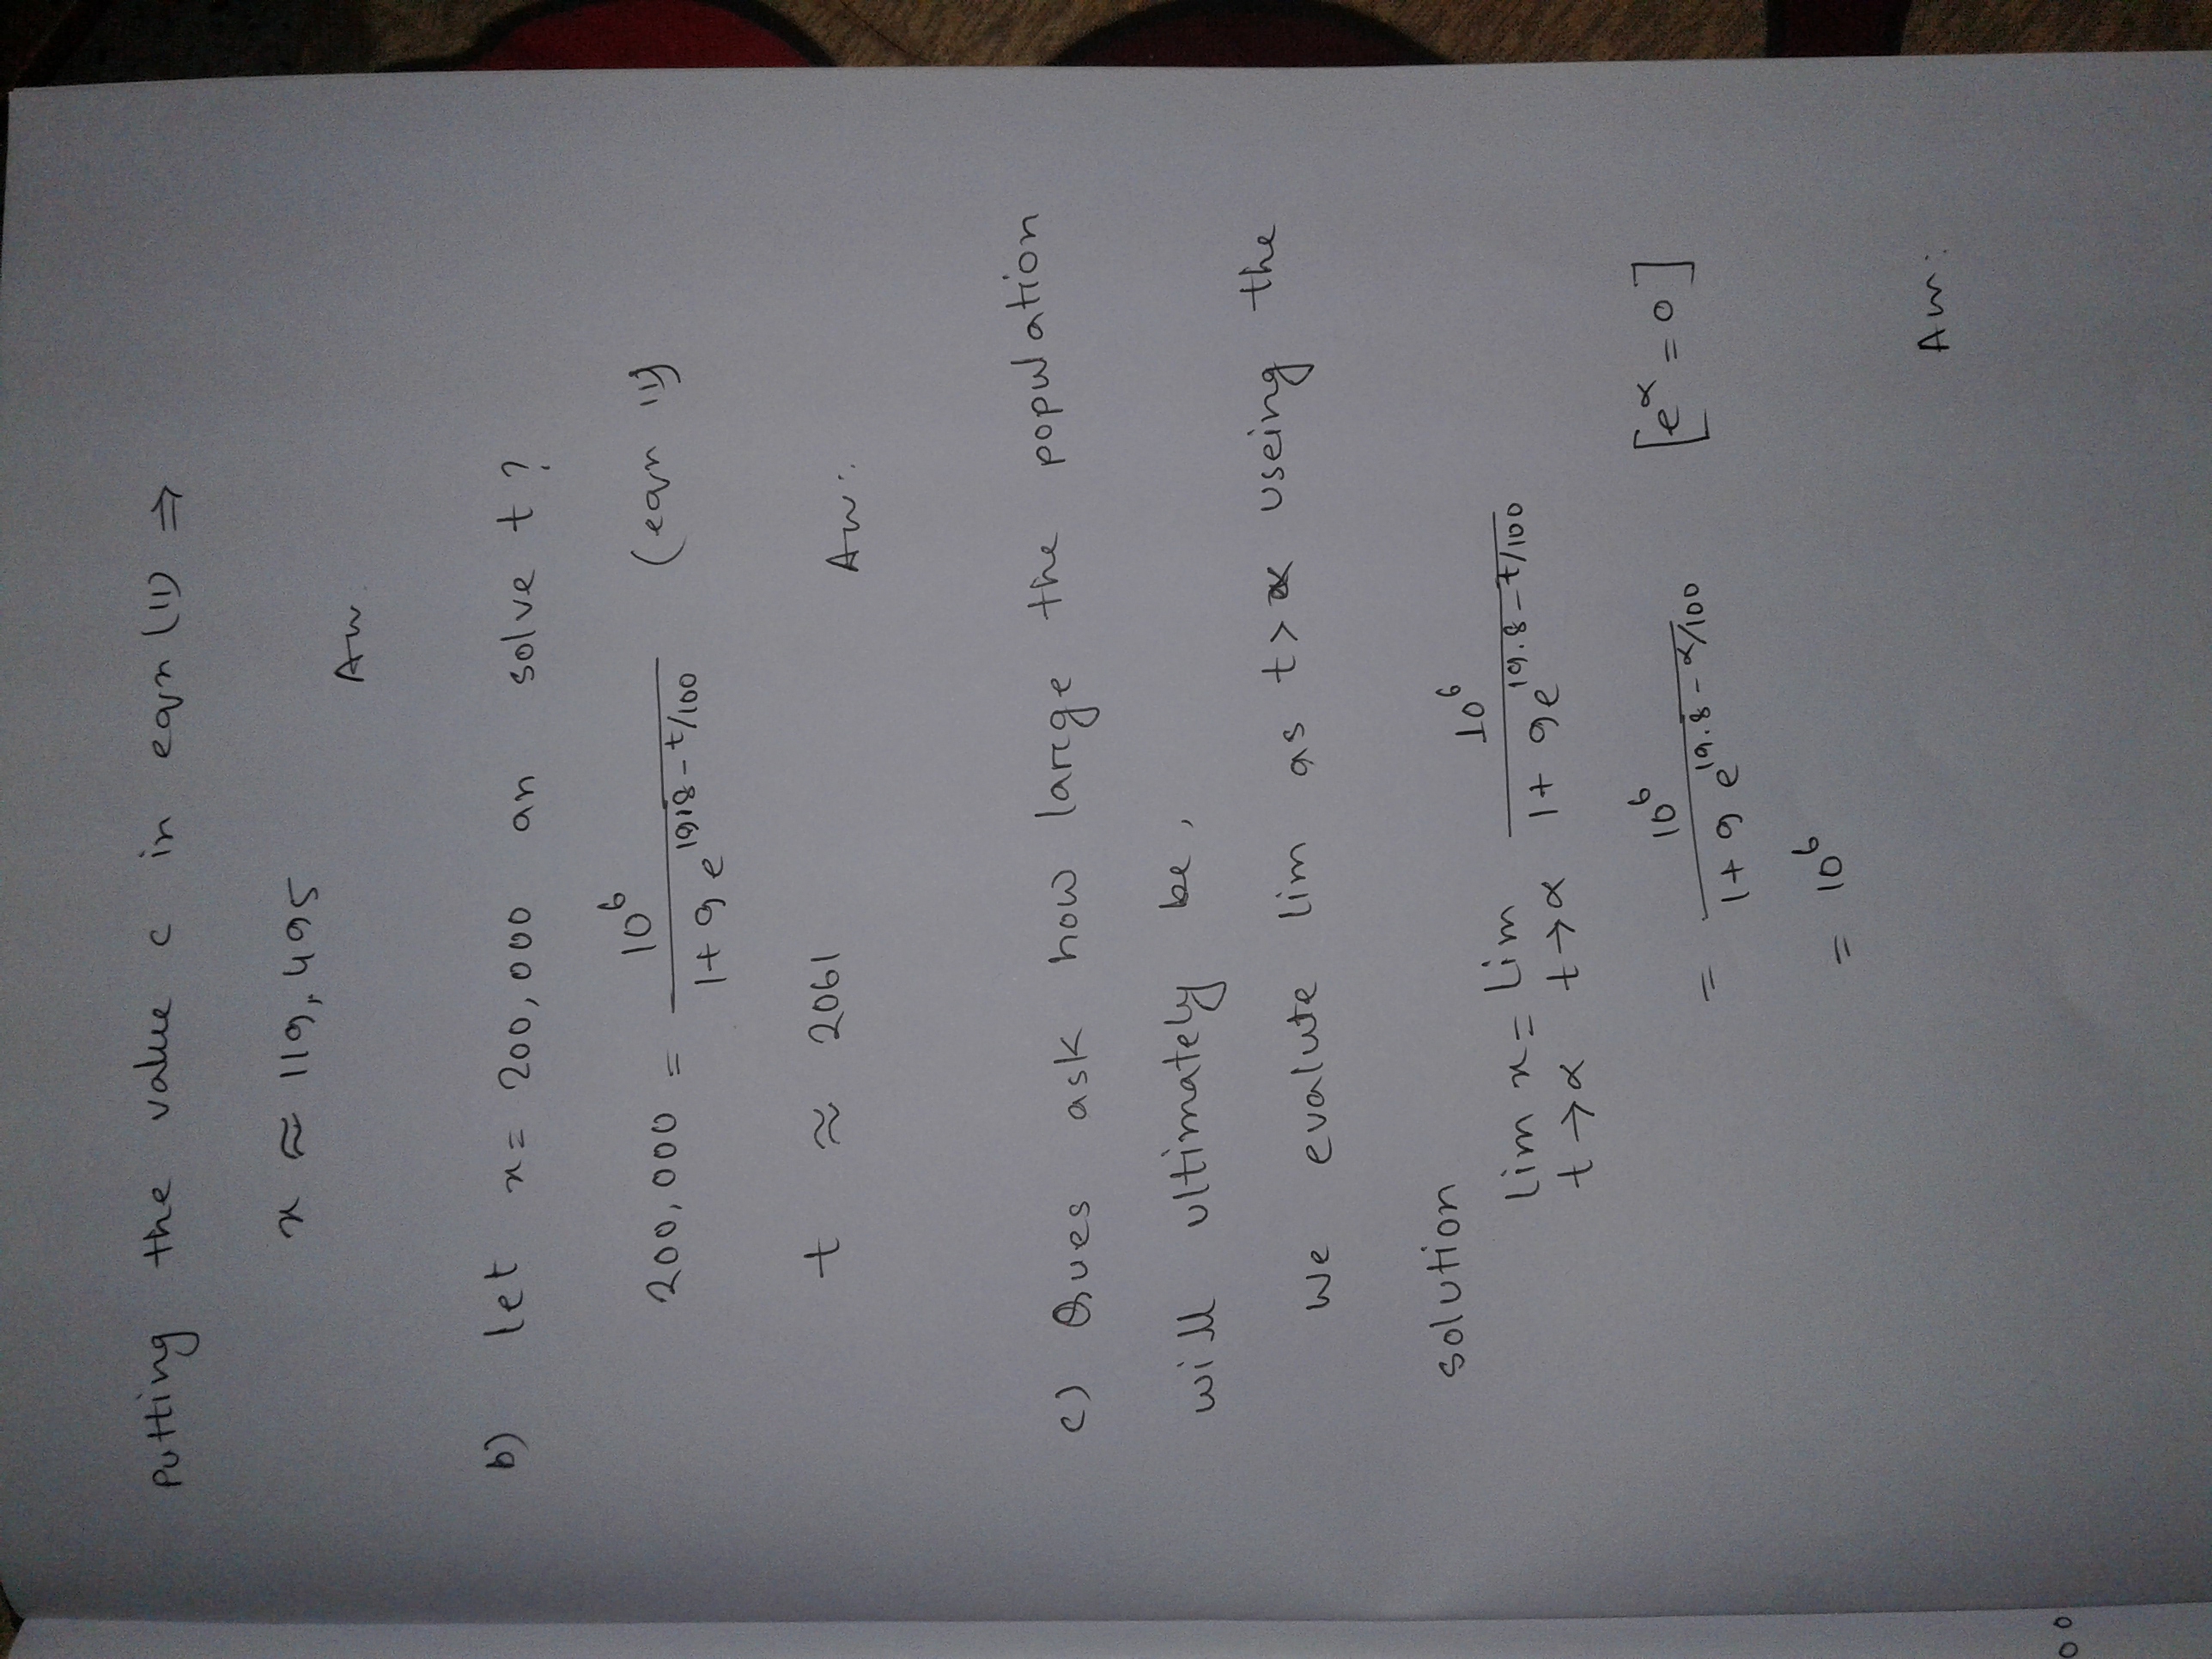 Putting the value c in eqn (11) ⇒
x ≈ 119,495
Aw.
b) let x = 200,000 an solve t ?
200,000 = 10^6 / (1 + 9e^(1918 - t/100)) (eqn 11)
t ≈ 2061
Aw:
c) Ques ask how large the population
will ultimately be,
We evalute lim as t > α useing the
solution
lim x = lim 10^6 / (1 + 9e^(19.8 - t/100))
t → α t → α
= 10^6 / (1 + 9e^(19.8 - α/100)) [e^α = 0]
= 10^6
Aw:
00